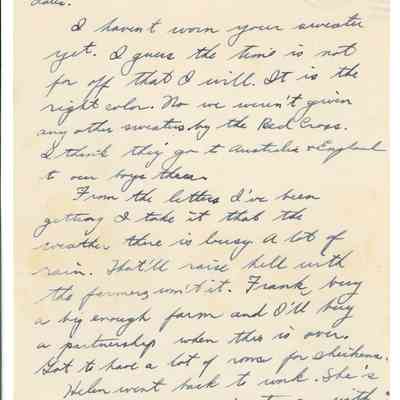 I haven't worn your sweater
yet. I guess the time is not
far off that I will. It is the
right color. No we weren't given
any other sweaters by the Red Cross.
I think they go to Australia & England
to our boys there.
From the letters I've been
getting I take it that the
weather there is lousy. A lot of
rain. That'll raise hell with
the farmers won't it. Frank, buy
a big enough farm and I'll buy
a partnership when this is over.
Got to have a lot of room for chickens.
Helen went back to work. She's